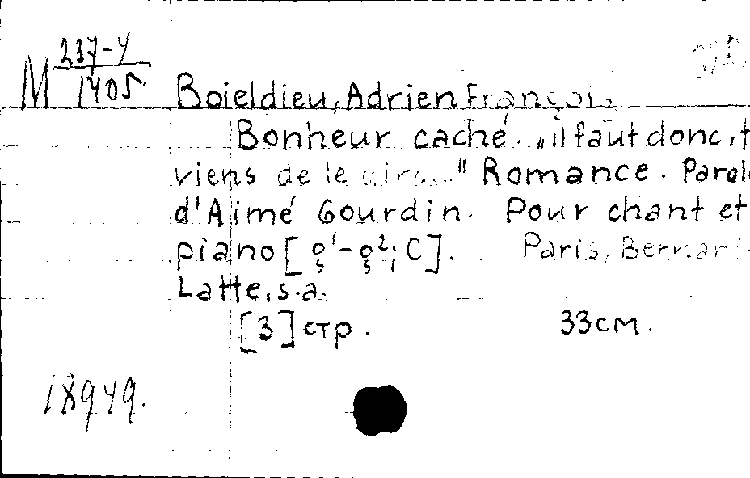 M 237-4
1405
Boieldieu, Adrien François.
Bonheur caché. „il faut donc, t
viens de le dire..." Romance. Parole
d'Aimé Gourdin. Pour chant et
piano [g¹-g²; C]. Paris, Bernard-
Latte, s.a.
[3] стр. 33см.
18949.